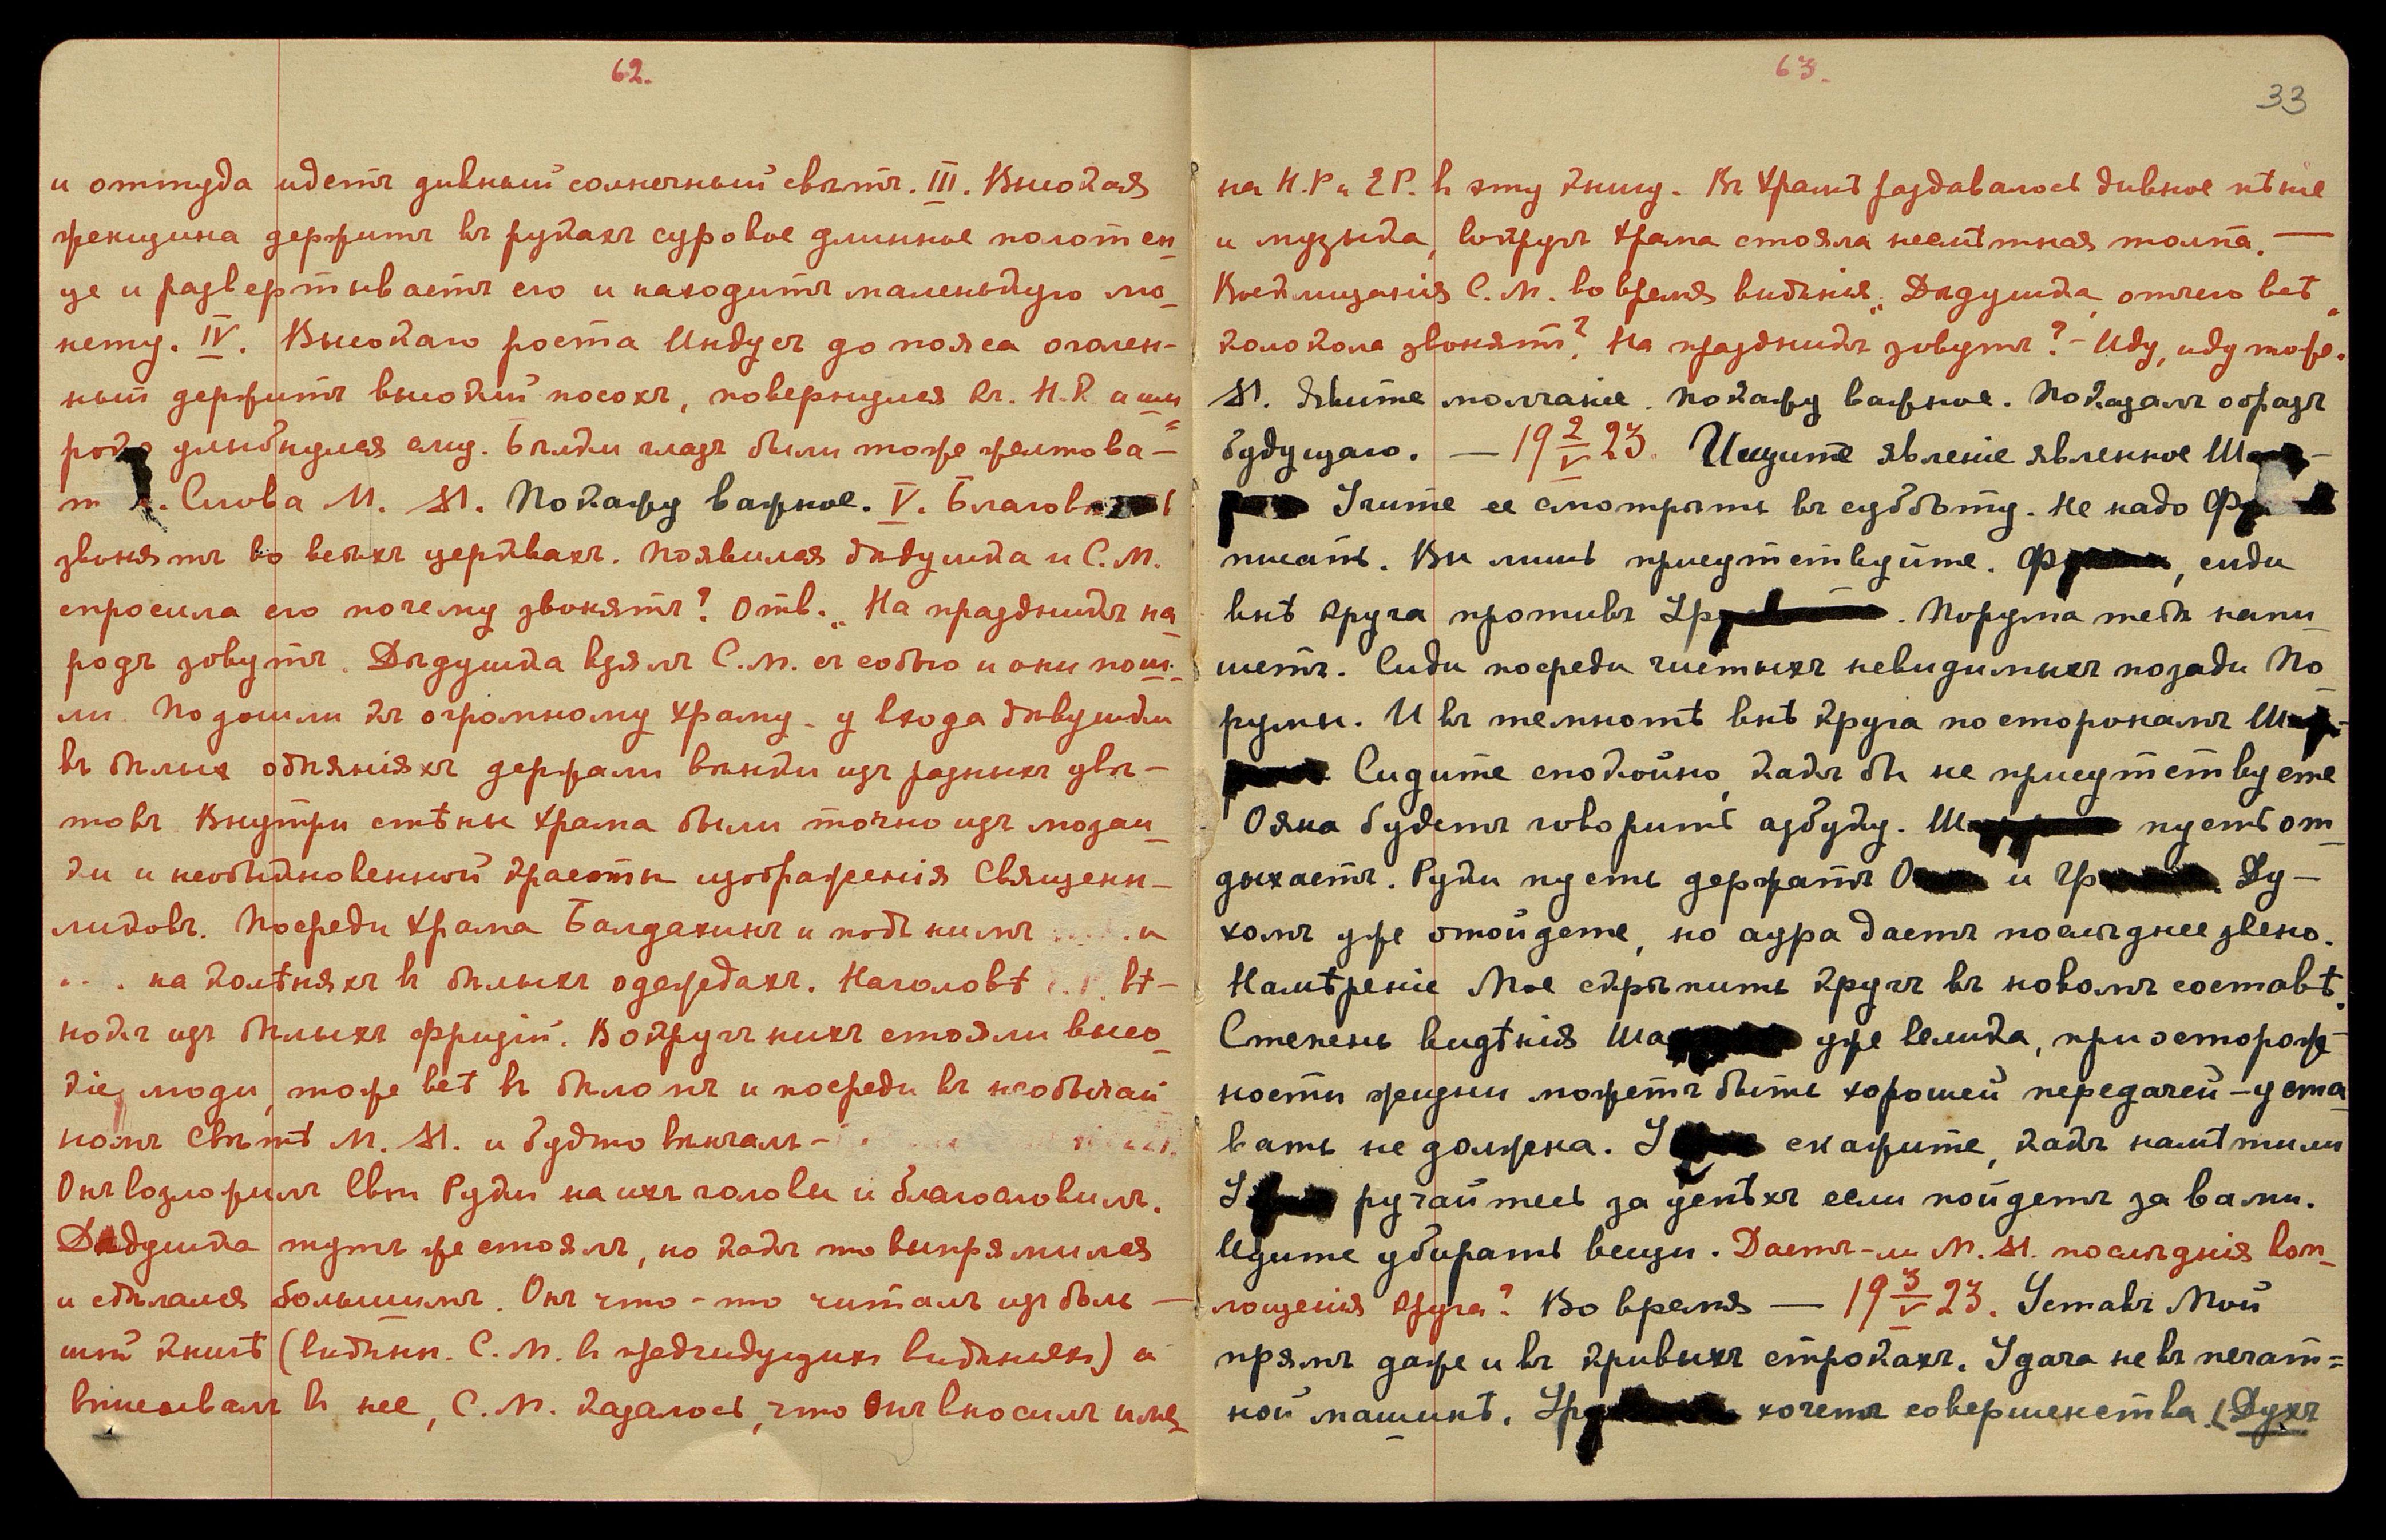 62.
и оттуда идетъ дивный солнечный свѣтъ. III. Высокая
женщина держитъ въ рукахъ суровое длинное полотен-
це и развертываетъ его и находитъ маленькую мо-
нету. IV. Высокаго роста Индусъ до пояса оголен-
ный держитъ высокий посохъ, повернулся къ Н.К. и ши-
роко улыбнулся ему. Бѣлки глазъ были тоже желтова-
т Слова М. M. Покажу важное. V. Благов
звонятъ во всѣхъ церквахъ. Появился дѣдушка и С.М.
спросила его почему звонятъ? Отв. „На праздникъ на-
родъ зовутъ. Дѣдушка взялъ С.М. съ собою и они пош-
ли. Подошли къ огромному храму. у входа дѣвушки
въ бѣлых одѣяніяхъ держали вѣнки изъ разныхъ цвѣ-
товъ Внутри стѣны храма были точно изъ мозаи-
ки и необыкновенной красоты изображенія Священн-
ликовъ. Посреди храма Балдахинъ и подъ нимъ и
на колѣняхъ в бѣлыхъ одеждахъ. На головѣ вѣ-
нокъ изъ бѣлыхъ фризій. Вокругъ нихъ стояли высо-
кіе люди, тоже всѣ въ бѣломъ и посреди въ необычай
номъ Свѣтѣ М. M. и будто вѣнчалъ
Онъ возложилъ Свои Руки на ихъ головы и благословилъ.
Дѣдушка тутъ же стоялъ, но какъ то выпрямился
и сдѣлался большимъ. Онъ что-то читалъ изъ боль-
шой книгѣ (видѣнн. С.М. в предъидущихъ видѣніяхъ) и
вписывалъ в нее, С.М. казалось, что Онъ вносилъ име-
63.
33
на Н.Р. и Е.Р. в эту книгу. Въ храмѣ раздавалось дивное пѣніе
и музыка, вокругъ храма стояла несмѣтная толпа. —
Восклицанія С.М. во время видѣнія „Дѣдушка, отчего всѣ
колокола звонятъ? На праздникъ зовутъ? - Иду, иду тоже."
M. Явите молчаніе. Покажу важное. Показалъ образъ
будущаго. — 19 2/V 23. Ищите явленіе явленное Ш
Учите ее смотрѣть въ субботу. Не надо Ф
писать. Вы лишь присутствуйте. Ф , сиди
внѣ круга противъ Ур . Порума тебѣ напи-
шетъ. Сиди посреди чистыхъ невидимыхъ позади По
румы. И въ темнотѣ внѣ круга по сторонамъ Ш
Сидите спокойно, какъ бы не присутствуете
Ояна будетъ говорить азбуку. Ш пусть от-
дыхаетъ. Руки пусть держатъ О и Ур Ду-
хомъ уже отойдете, но аура даетъ послѣднее звено.
Намѣреніе Мое скрѣпить кругъ въ новомъ составѣ.
Степень видѣнія Ша уже велика, при осторож-
ности жизни можетъ быть хорошей передачей - уста-
вать не должна. У скажите, какъ намѣтили
У ручайтесь за успѣхъ если пойдетъ за вами.
Идите убирать вещи. Дастъ-ли М. M. послѣднія воп-
лощенія круга? Во время — 19 3/V 23. Уставъ Мой
прямъ даже и въ кривыхъ строкахъ. Удача не въ печат-
ной машинѣ. Ур хочетъ совершенства. (Духъ